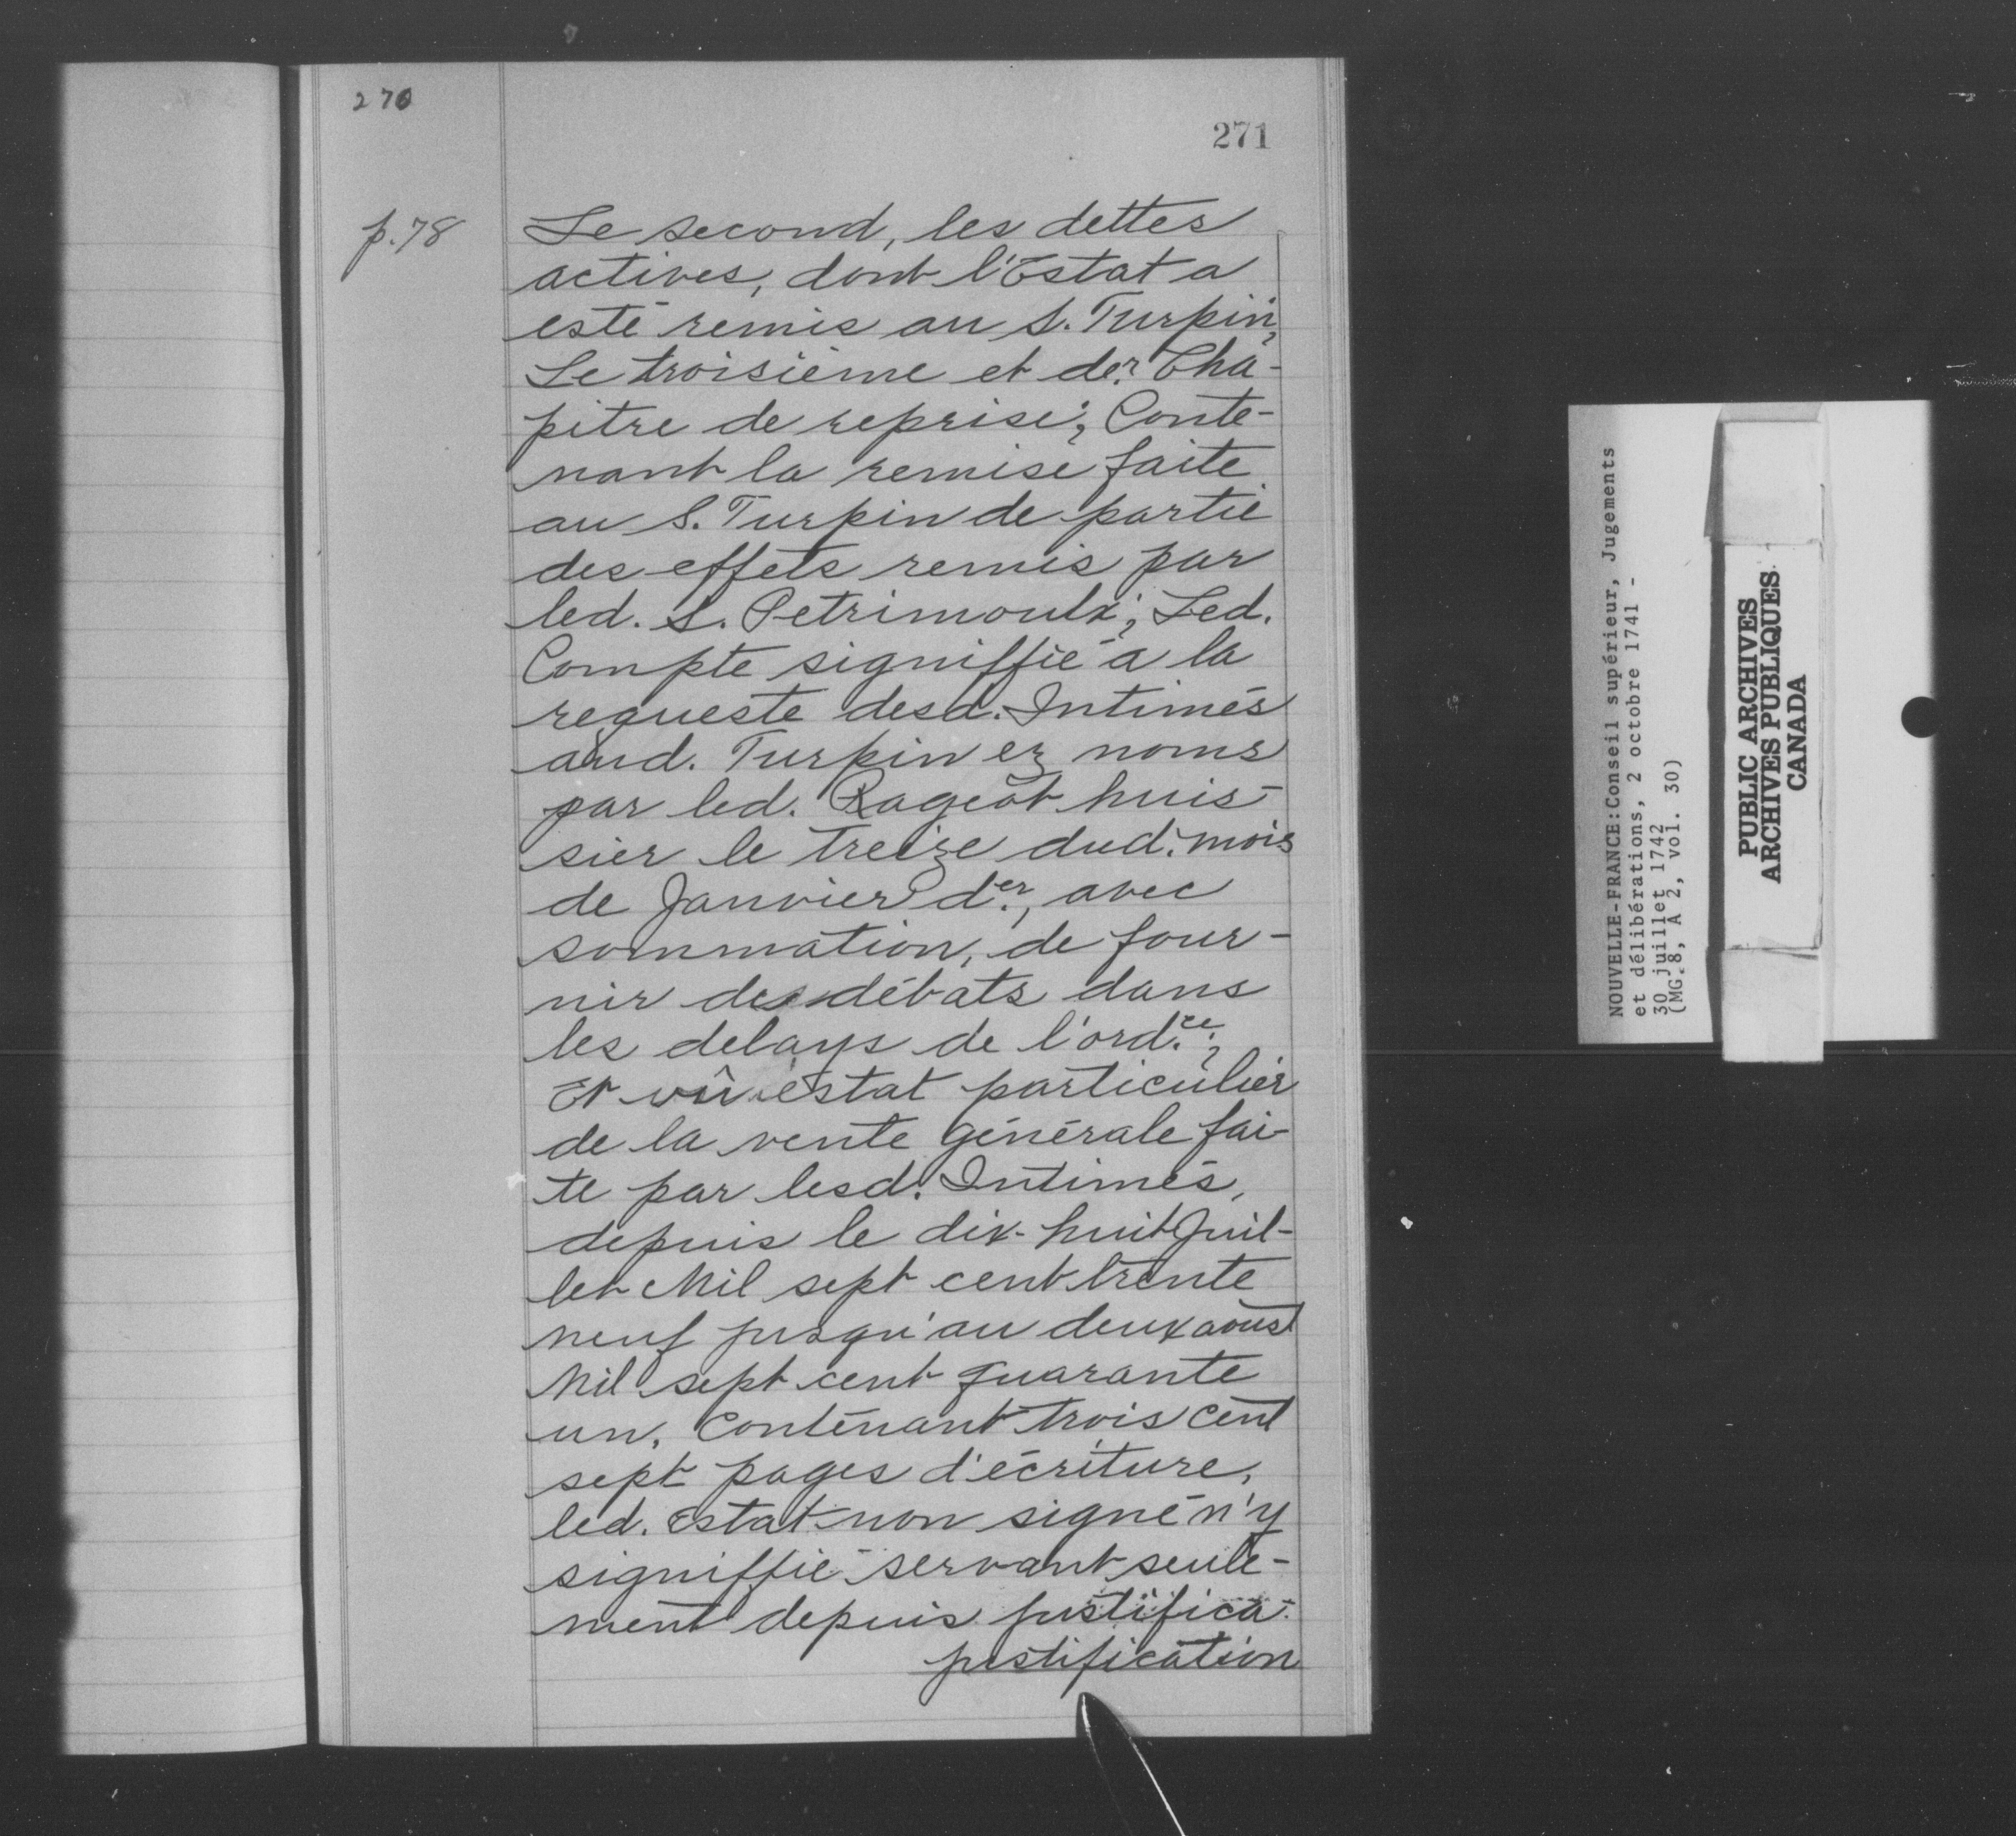 270
271
p. 78
Le second, les dettes
actives, dont l'Estat a
esté remis au S. Turpin,
Le troisième et der. Cha-
pitre de reprise; Conte-
nant la remise faite
au S. Turpin de partie
des effets remis par
led. S. Petrimoulx; Led.
Compte signiffié à la
requeste desd. Intimés
aud. Turpin ez noms
par led. Rageot huis-
sier le treize dud. mois
de Janvier der, avec
sommation, de four-
nir des débats dans
les delays de l'ord.ce;
Et vû estat particulier
de la vente générale fai-
te par lesd. Intimés,
depuis le dix-huit Juil-
let Mil sept cent trente
neuf jusqu'au deux aoust
Mil sept cent quarante
un, Contenant trois cent
sept pages d'écriture,
led. estat non signé n'y
signiffié servant seule-
ment depuis justifica-
justification
NOUVELLE-FRANCE:Conseil supérieur, Jugements
et délibérations, 2 octobre 1741 -
30 juillet 1742
(MG 8, A 2, vol. 30)
PUBLIC ARCHIVES
ARCHIVES PUBLIQUES
CANADA